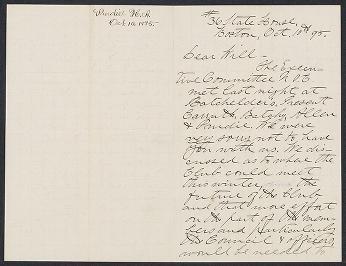 Purdie H.A.
Oct. 10, 1895.
#36 State House,
Boston, Oct. 10th 95.
Dear Will
The Execu-
tive Committee N.O.C.
met last night at
Batchelder's. Present
Batchelder, Allen
& Purdie. We were
very sorry not to have
you with us. We dis-
cussed as to what the
Club could meet
this winter, the
future of the Club
and that more effort
on the part of the mem-
bers and particularly
the Council & officers,
would be needed to